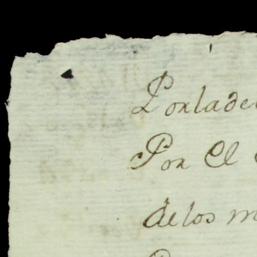 Porlade
Por El
de los m